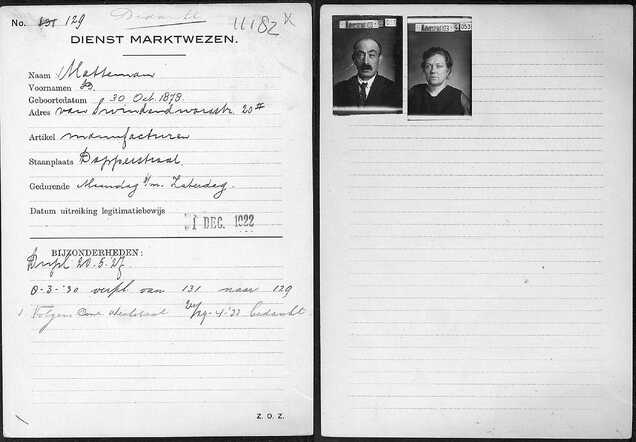 No. 131 129 11182 X
DIENST MARKTWEZEN.
Naam Matteman
Voornamen
Geboortedatum 30 Oct. 1878.
Adres van Swindendwarsstr. 20 II
Artikel manufacturen
Staanplaats Dapperstraat.
Gedurende Maandag t/m. Zaterdag.
Datum uitreiking legitimatiebewijs 1 DEC. 1922
BIJZONDERHEDEN:
Dupl 20-5-27.
8-3-'30 verpl van 131 naar 129
Volgens 29-4-'33 bedankt.
Z. O. Z.